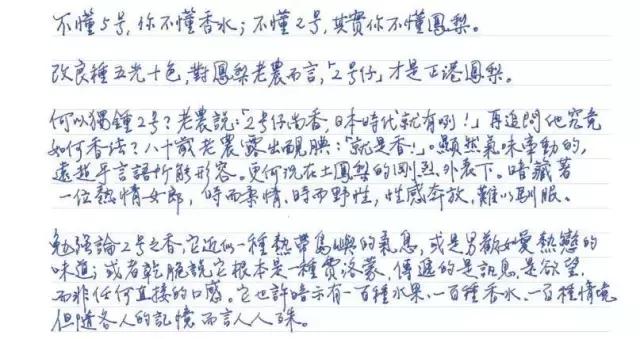 不懂5号,你不懂香水;不懂2号,其實你不懂鳳梨。
改良種五光十色,對鳳梨老農而言,「2号仔」才是正港鳳梨。
何以獨鍾2号?老農說:「2号仔尚香,日本時代就有咧!」再追問他究竟
如何香法?八十歲老農露出靦腆:「就是香!」。顯然氣味牽動的,
遠超乎言語所能形容。更何況在土鳳梨的剛烈外表下。暗藏著
一位熱情女郎,時而柔情、時而野性,性感奔放,難以馴服。
勉強論2号之香,它近似一種熱帶島嶼的氣息,或是男歡女愛熱戀的
味道;或者乾脆說它根本是一種費洛蒙,傳遞的是訊息,是欲望,
而非任何直接的口感。它也許暗示有一百種水果、一百種香水、一百種情境
但隨各人的記憶而言人人殊。